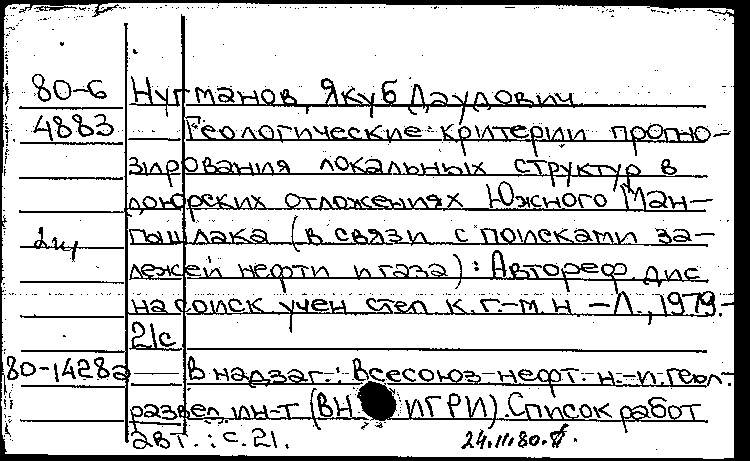 80-6 Нугманов, Якуб Даудович
4883 Геологические критерии прогно-
зирования локальных структур в
доюрских отложениях Южного Ман-
гышлака (в связи с поисками за-
лежей нефти и газа): Автореф. дис
на соиск учен степ к. г.-м. н. - Л., 1979.-
21с
80-14282 В надзаг.: Всесоюз. нефт. н.-и. геол.-
развед. ин-т (ВНИГРИ). Список работ
авт.: с. 21. 24.11.80.